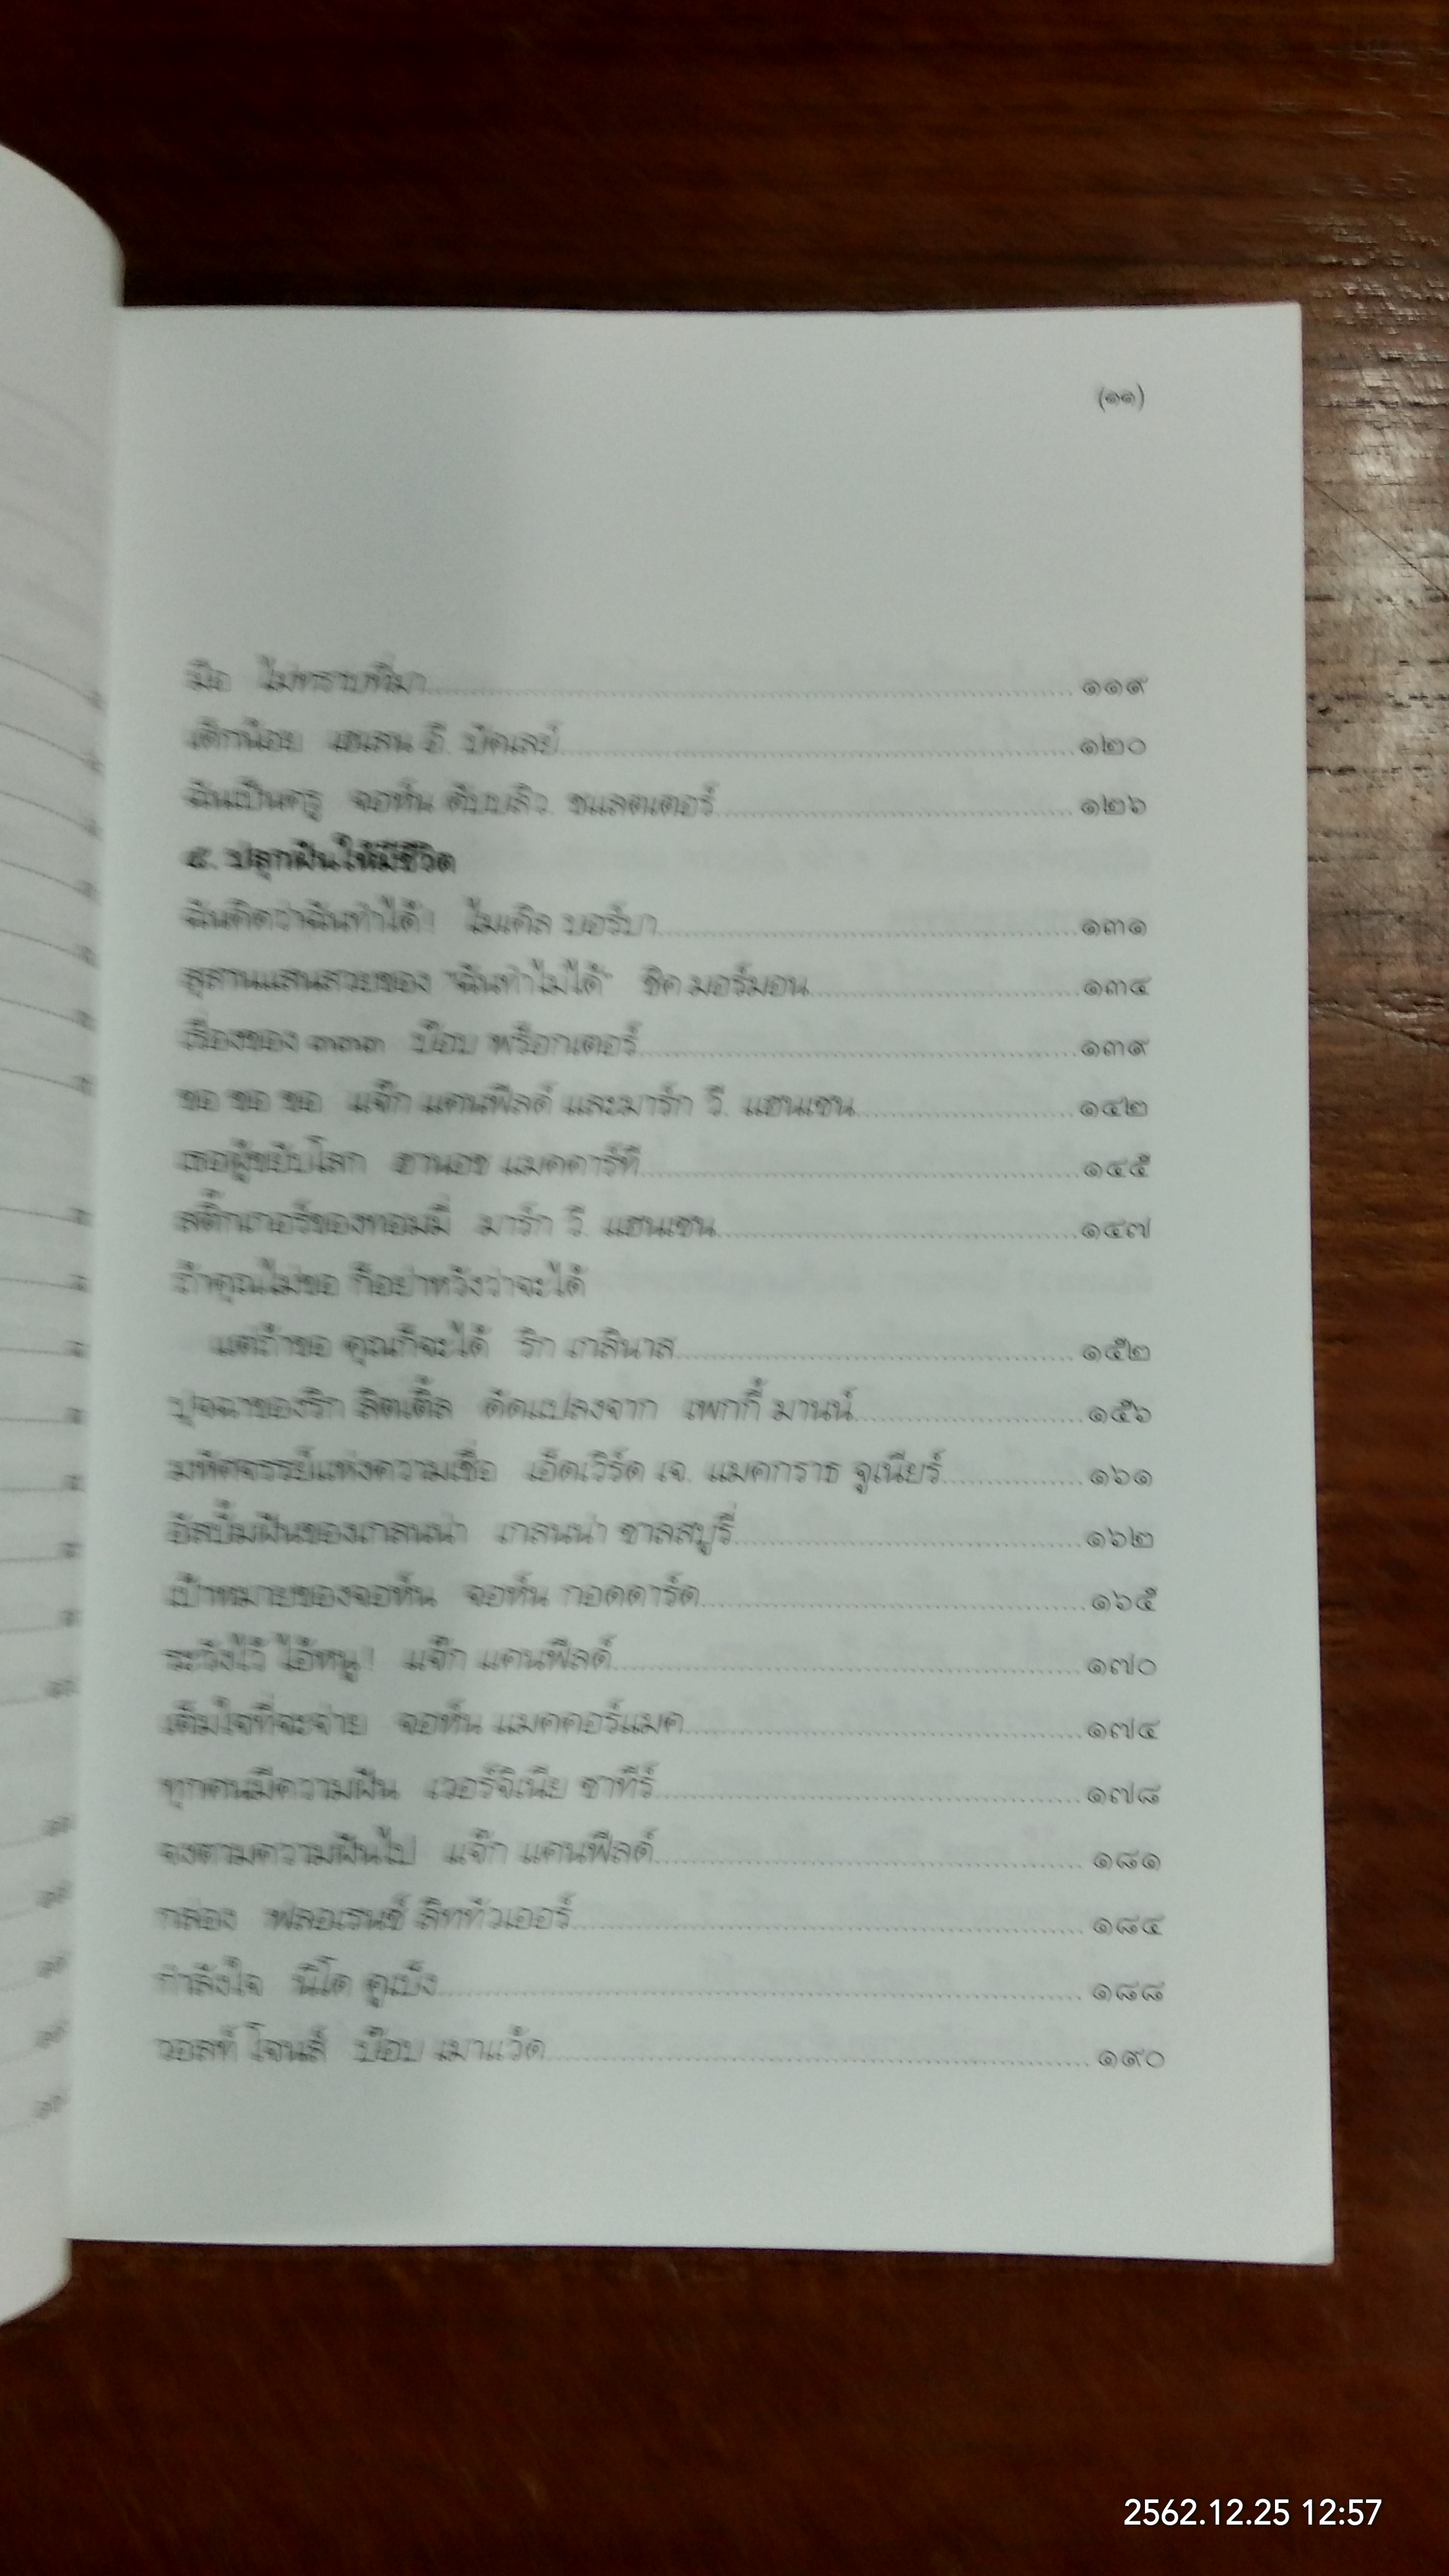 (๑๑)
มือ ไม่ทราบที่มา ๑๑๙
เด็กน้อย เฮเลน อี. บัคเลย์ ๑๒๐
ฉันเป็นครู จอห์น ดับบลิว. ชแลตเตอร์ ๑๒๖
๕. ปลุกฝันให้มีชีวิต
ฉันคิดว่าฉันทำได้! ไมเคิล บอร์บา ๑๓๑
สุสานแสนสวยของ "ฉันทำไม่ได้" ชิค มอร์มอน ๑๓๔
เรื่องของ ๓๓๓ บ๊อบ พร็อกเตอร์ ๑๓๙
ขอ ขอ ขอ แจ๊ก แคนฟีลด์ และมาร์ก วี. แฮนเซน ๑๔๒
เธอผู้ขยับโลก ฮานอช แมคคาร์ที ๑๔๕
สติ๊กเกอร์ของทอมมี่ มาร์ก วี. แฮนเซน ๑๔๗
ถ้าคุณไม่ขอ ก็อย่าหวังว่าจะได้
แต่ถ้าขอ คุณก็จะได้ ริก เกลินาส ๑๕๒
ปุจฉาของริก ลิตเติ้ล ดัดแปลงจาก เพกกี้ มานน์ ๑๕๖
มหัศจรรย์แห่งความเชื่อ เอ็ดเวิร์ด เจ. แมคกราธ จูเนียร์ ๑๖๑
อัลบั้มฝันของเกลนน่า เกลนน่า ซาลสบูรี่ ๑๖๒
เป้าหมายของจอห์น จอห์น กอดดาร์ด ๑๖๕
ระวังไว้ ไอ้หนู! แจ๊ก แคนฟีลด์ ๑๗๐
เต็มใจที่จะจ่าย จอห์น แมคคอร์แมค ๑๗๔
ทุกคนมีความฝัน เวอร์จิเนีย ซาทีร์ ๑๗๘
จงตามความฝันไป แจ๊ก แคนฟีลด์ ๑๘๑
กล่อง ฟลอเรนซ์ ลิททัวเออร์ ๑๘๔
กำลังใจ นิโด คูเบ็ง ๑๘๘
วอลท์ โจนส์ บ๊อบ เมาแว้ด ๑๙๐
2562.12.25 12:57